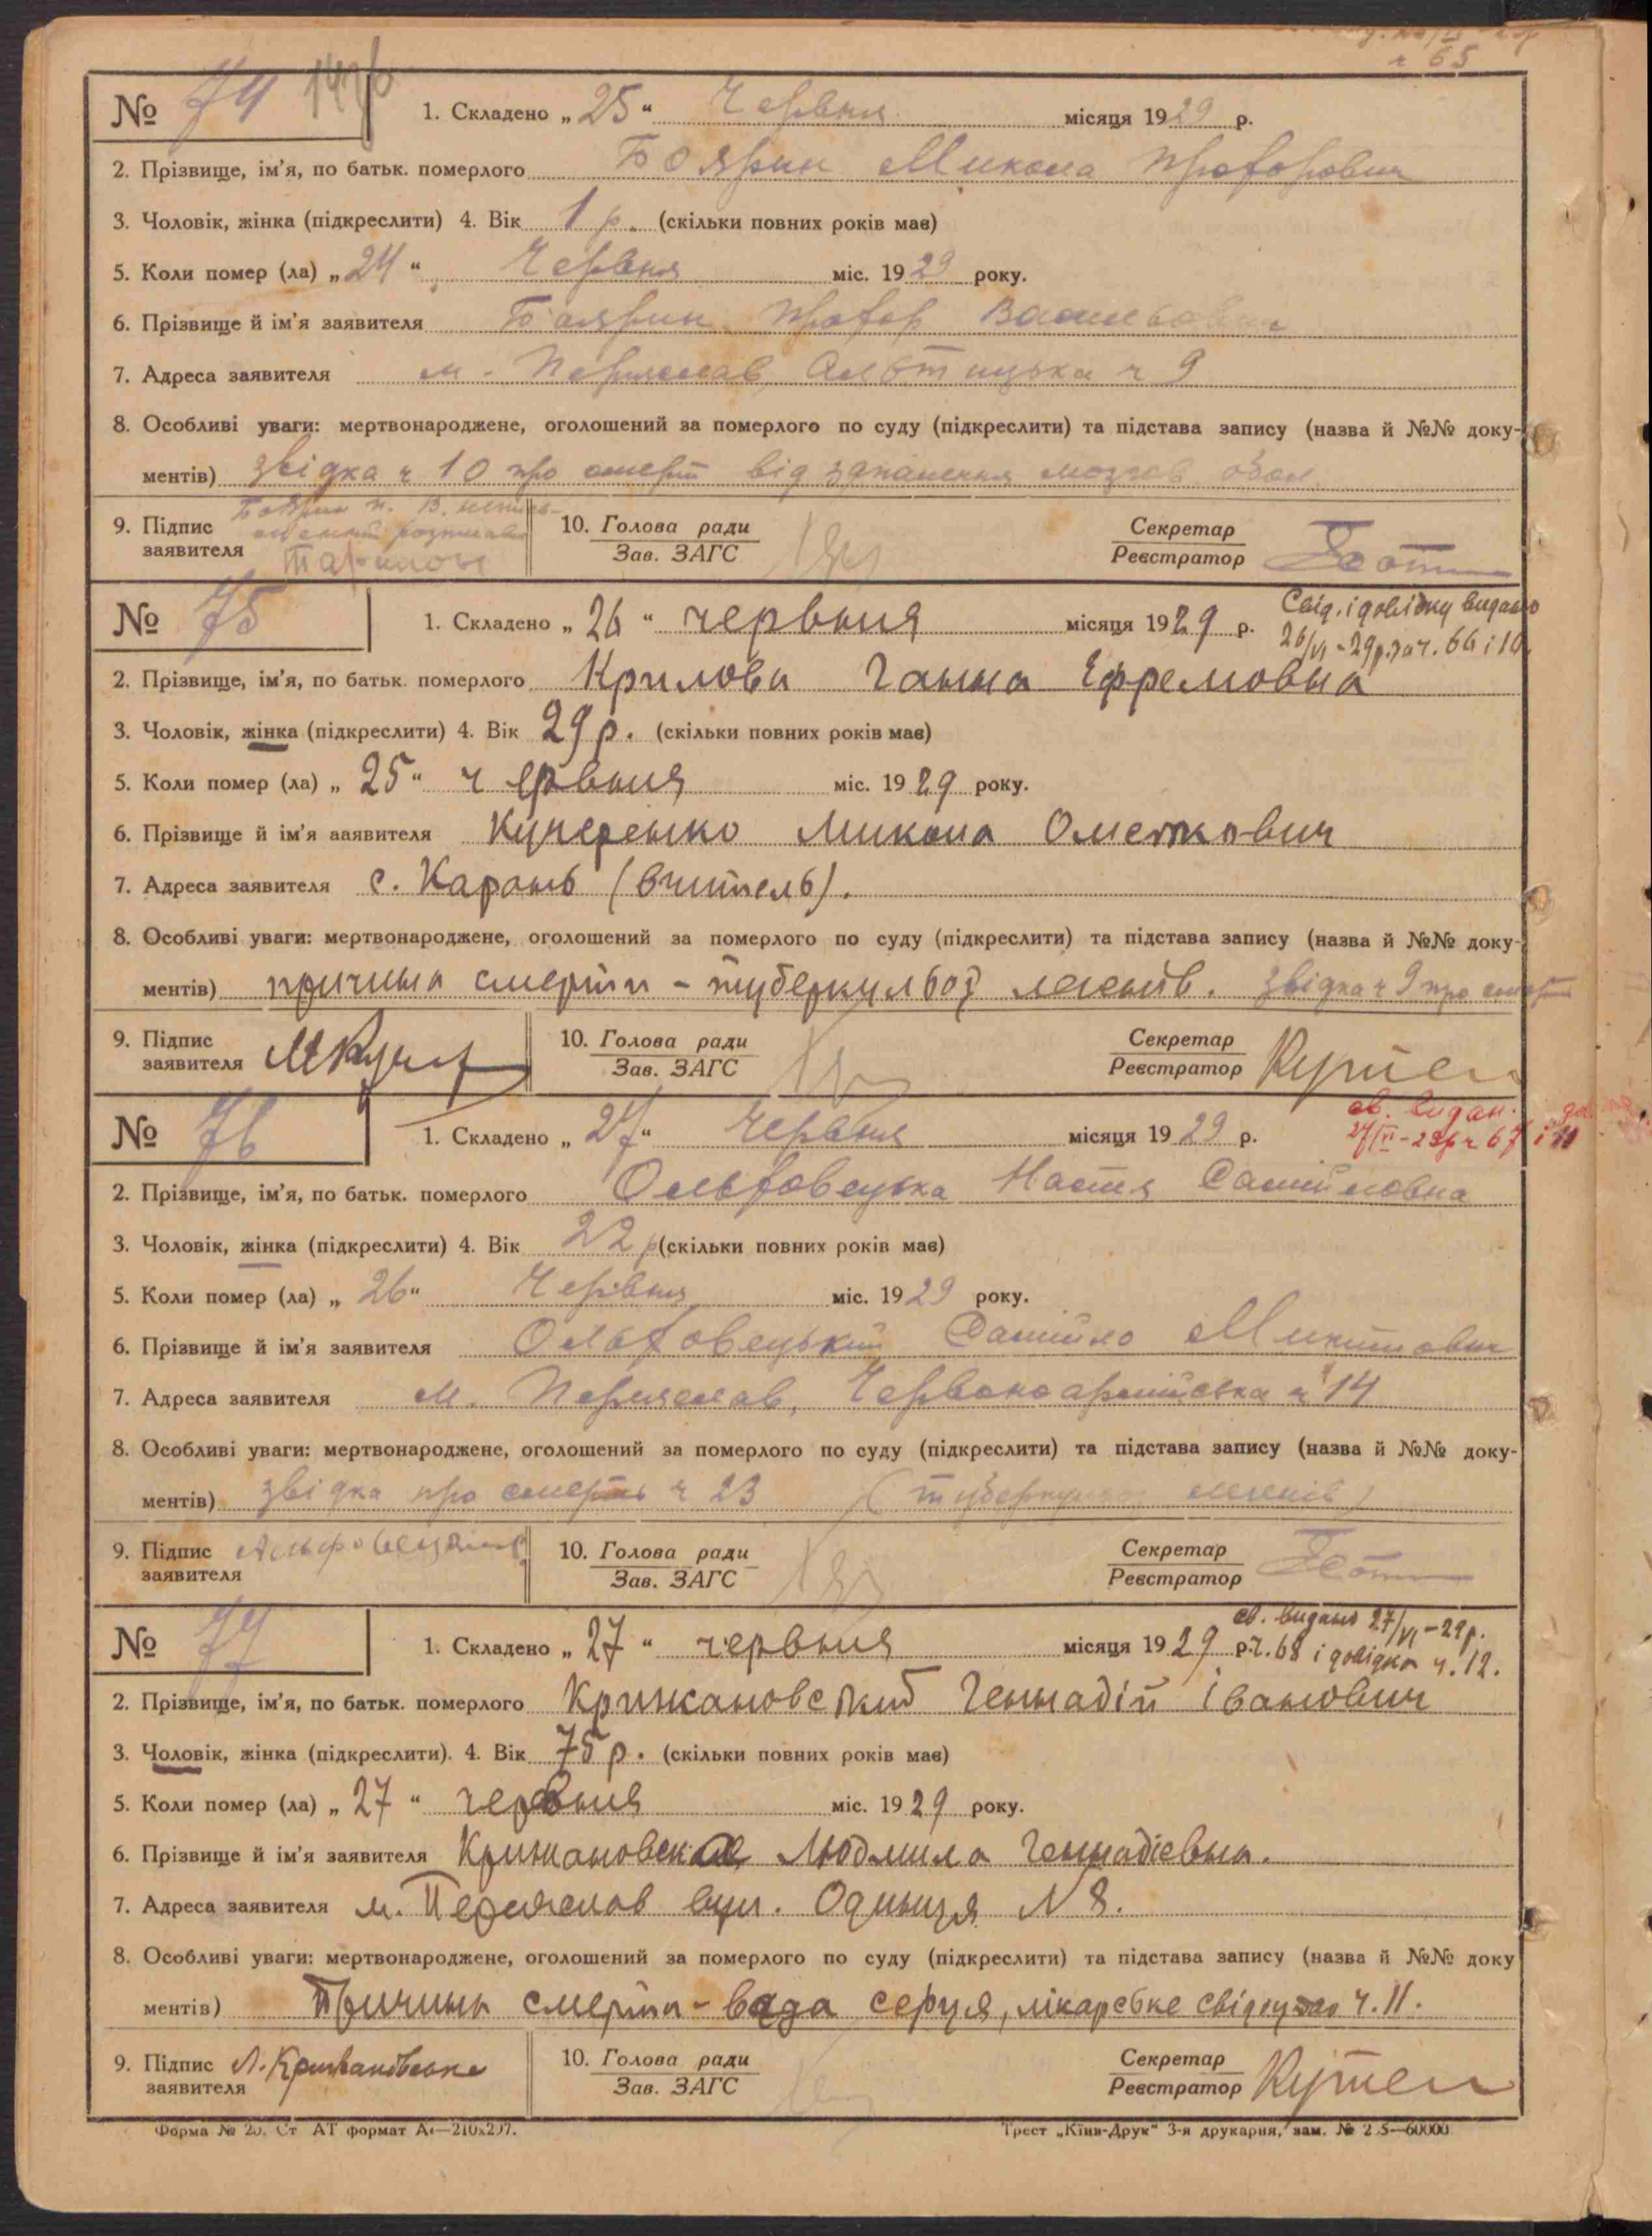 ч 65
№ 74 147б 1. Складено „25“ Червня місяця 1929 р.
2. Прізвище, ім'я, по батьк. померлого Боярин Микола Прохорович
3. Чоловік, жінка (підкреслити) 4. Вік 1 р. (скільки повних років має)
5. Коли помер (ла) „24“ Червня міс. 1929 року.
6. Прізвище й ім'я заявителя Боярин Прохор Васильович
7. Адреса заявителя м. Переяслав, Альтицька ч 9
8. Особливі уваги: мертвонароджене, оголошений за померлого по суду (підкреслити) та підстава запису (назва й №№ доку-
ментів) звідка ч 10 про смерть від запалення мозгов. обол.
9. Підпис заявителя Боярин П. В. 10. Голова ради Зав. ЗАГС Секретар Реєстратор
№ 75 1. Складено „26“ червния місяця 1929 р. Свід. і довідку видано
26/VI-29р. за ч. 66 і 10.
2. Прізвище, ім'я, по батьк. померлого Крилова Ганна Єфремовна
3. Чоловік, жінка (підкреслити) 4. Вік 29 р. (скільки повних років має)
5. Коли помер (ла) „25“ червния міс. 1929 року.
6. Прізвище й ім'я заявителя Кучеренко Микола Ометкович
7. Адреса заявителя с. Карань (вчитель).
8. Особливі уваги: мертвонароджене, оголошений за померлого по суду (підкреслити) та підстава запису (назва й №№ доку-
ментів) причина смерти - туберкульоз легенів. звідка ч 9 про смерть
9. Підпис заявителя 10. Голова ради Зав. ЗАГС Секретар Реєстратор
№ 76 1. Складено „27“ Червня місяця 1929 р. св. видан. до.
27/VI-29р ч 67 і 11
2. Прізвище, ім'я, по батьк. померлого Ольховецька Настя Самійловна
3. Чоловік, жінка (підкреслити) 4. Вік 22 р (скільки повних років має)
5. Коли помер (ла) „26“ Червня міс. 1929 року.
6. Прізвище й ім'я заявителя Ольховецький Самійло Микитович
7. Адреса заявителя м. Переяслав, Червоноармійська ч 14
8. Особливі уваги: мертвонароджене, оголошений за померлого по суду (підкреслити) та підстава запису (назва й №№ доку-
ментів) звідка про смерть ч 23 (туберкульоз легенів)
9. Підпис заявителя 10. Голова ради Зав. ЗАГС Секретар Реєстратор
№ 77 1. Складено „27“ червния місяця 1929 р. св. видано 27/VI-29р.
ч. 68 і довідка ч. 12.
2. Прізвище, ім'я, по батьк. померлого Крижановський Геннадій Іванович
3. Чоловік, жінка (підкреслити). 4. Вік 75 р. (скільки повних років має)
5. Коли помер (ла) „27“ червния міс. 1929 року.
6. Прізвище й ім'я заявителя Крижановская Людмила Геннадієвна.
7. Адреса заявителя м. Переяслав вул. Одинця № 8.
8. Особливі уваги: мертвонароджене, оголошений за померлого по суду (підкреслити) та підстава запису (назва й №№ доку
ментів) Причина смерти - вада серця, лікарське свідоцтво ч. 11.
9. Підпис заявителя Л. Крижановська 10. Голова ради Зав. ЗАГС Секретар Реєстратор
Форма № 20. Ст АТ формат А4—210х297. Трест „Київ-Друк“ 3-я друкарня, зам. № 25—60000